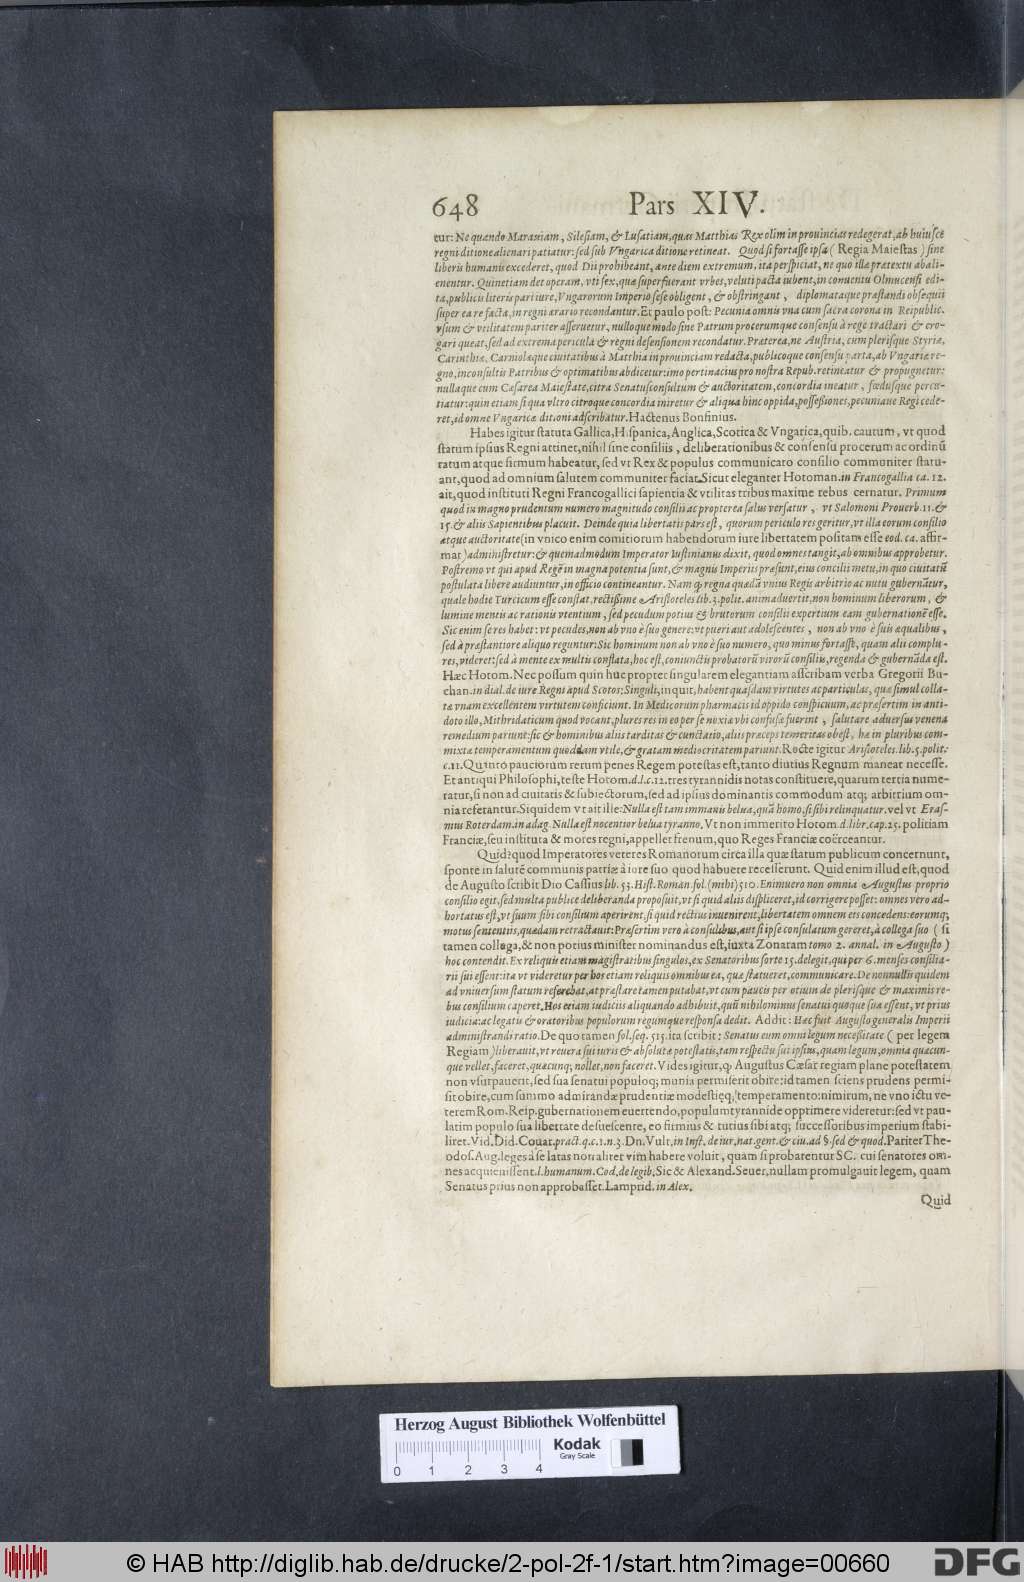 648 Pars XIV.
tur: Ne quando Marauiam, Silesiam, & Lusatiam, quas Matthias Rex olim in prouincias redegerat, ab huiusce
regni ditione alienari patiatur: sed sub Vngarica ditione retineat. Quod si fortasse ipsa (Regia Maiestas) sine
liberis humanis excederet, quod Dii prohibeant, ante diem extremum, ita perspiciat, ne quo illæ prætextu abali-
enentur. Quinetiam det operam, vti sex, quæ superfuerant vrbes, veluti pacta iubent, in conuentu Olmucensi edi-
ta, publicis literis pari iure, Vngarorum Imperio sese obligent, & obstringant, diplomataque præstandi obsequii
super ea re facta, in regni ærario recondantur. Et paulo post: Pecunia omnis vna cum sacra corona in Reipublic.
vsum & vtilitatem pariter asseruetur, nulloque modo sine Patrum procerumque consensu à rege tractari & ero-
gari queat, sed ad extrema pericula & regni defensionem recondatur. Præterea, ne Austria, cum plerisque Styriæ,
Carinthiæ, Carniolæque ciuitatibus à Matthia in prouinciam redacta, publicoque consensu parta, ab Vngariæ re-
gno, inconsultis Patribus & optimatibus abdicetur: imo pertinacius pro nostra Repub. retineatur & propugnetur:
nullaque cum Cæsarea Maiestate, citra Senatusconsultum & auctoritatem, concordia ineatur, fœdusque percu-
tiatur: quin etiam si qua vltro citroque concordia miretur & aliqua hinc oppida, possessiones, pecuniaue Regi cede-
ret, id omne Vngaricæ ditioni adscribatur. Hactenus Bonfinius.
Habes igitur statuta Gallica, Hispanica, Anglica, Scotica & Vngarica, quib. cautum, vt quod
statum ipsius Regni attinet, nihil sine consiliis, deliberationibus & consensu procerum ac ordinũ
ratum atque firmum habeatur, sed vt Rex & populus communicato consilio communiter statu-
ant, quod ad omnium salutem communiter faciat. Sicut eleganter Hotoman. in Francogallia ca. 12.
ait, quod instituti Regni Francogallici sapientia & vtilitas tribus maxime rebus cernatur. Primum
quod in magno prudentum numero magnitudo consilii ac propterea salus versatur, vt Salomoni Prouerb. 11. &
15. & aliis Sapientibus placuit. Deinde quia libertatis pars est, quorum periculo res geritur, vt illa eorum consilio
atque auctoritate (in vnico enim comitiorum habendorum iure libertatem positam esse eod. ca. affir-
mat) administretur: & quemadmodum Imperator Iustinianus dixit, quod omnes tangit, ab omnibus approbetur.
Postremo vt qui apud Regẽ in magna potentia sunt, & magnis Imperiis præsunt, eius concilii metu, in quo ciuitatũ
postulata libere audiuntur, in officio contineantur. Nam q; regna quædã vnius Regis arbitrio ac nutu gubernãtur,
quale hodie Turcicum esse constat, rectissime Aristoteles lib. 3. polit. animaduertit, non hominum liberorum, &
lumine mentis ac rationis vtentium, sed pecudum potius & brutorum consilii expertium eam gubernationẽ esse.
Sic enim se res habet: vt pecudes, non ab vno è suo genere: vt pueri aut adolescentes, non ab vno è suis æqualibus,
sed à præstantiore aliquo reguntur: Sic hominum non ab vno è suo numero, quo minus fortasse, quam alii complu-
res, videret: sed à mente ex multis constata, hoc est, coniunctis probatorũ virorũ consiliis, regenda & gubernãda est.
Hæc Hotom. Nec possum quin huc propter singularem elegantiam asscribam verba Gregorii Bu-
chan. in dial. de iure Regni apud Scotos: Singuli, inquit, habent quasdam virtutes ac particulas, quæ simul colla-
tæ vnam excellentem virtutem conficiunt. In Medicorum pharmacis id oppido conspicuum, ac præsertim in anti-
doto illo, Mithridaticum quod vocant, plures res in eo per se noxiæ vbi confusæ fuerint, salutare aduersus venena
remedium pariunt: sic & hominibus aliis tarditas & cunctatio, aliis præceps temeritas obest, hæ in pluribus com-
mixtæ temperamentum quoddam vtile, & gratam mediocritatem pariunt. Recte igitur Aristoteles. lib. 5. polit:
c. 11. Quinto pauciorum rerum penes Regem potestas est, tanto diutius Regnum maneat necesse.
Et antiqui Philosophi, teste Hotom. d. l. c. 12. tres tyrannidis notas constituere, quarum tertia nume-
ratur, si non ad ciuitatis & subiectorum, sed ad ipsius dominantis commodum atq; arbitrium om-
nia referantur. Siquidem vt ait ille: Nulla est tam immanis belua, quã homo, si sibi relinquatur. vel vt Eras-
mus Roterdam. in adag. Nulla est nocentior belua tyranno. Vt non immerito Hotom. d. libr. cap. 25. politiam
Franciæ, seu instituta & mores regni, appellet frenum, quo Reges Franciæ coërceantur.
Quid? quod Imperatores veteres Romanorum circa illa quæ statum publicum concernunt,
sponte in salutẽ communis patriæ à iure suo quod habuere recesserunt. Quid enim illud est, quod
de Augusto scribit Dio Cassius lib. 53. Hist. Roman. fol. (mihi) 510. Enimuero non omnia Augustus proprio
consilio egit, sed multa publice deliberanda proposuit, vt si quid aliis displiceret, id corrigere posset: omnes vero ad-
hortatus est, vt suum sibi consilium aperirent, si quid rectius inuenirent, libertatem omnem eis concedens: eorumq;
motus sententiis, quædam retractauit: Præsertim vero à consulibus, aut si ipse consulatum gereret, à collega suo (si
tamen collega, & non potius minister nominandus est, iuxta Zonaram tomo 2. annal. in Augusto)
hoc contendit. Ex reliquis etiam magistratibus singulos, ex Senatoribus sorte 15. delegit, qui per 6. menses consilia-
rii sui essent: ita vt videretur per hos etiam reliquis omnibus ea, quæ statueret, communicare. De nonnullis quidem
ad vniuersum statum referebat, at præstare tamen putabat, vt cum paucis per otium de plerisque & maximis re-
bus consilium caperet. Hos etiam iudiciis aliquando adhibuit, quũ nihilominus senatui quoque sua essent, vt prius
iudicia: ac legatis & oratoribus populorum regumque responsa dedit. Addit: Hæc fuit Augusto generalis Imperii
administrandi ratio. De quo tamen fol. seq. 515. ita scribit: Senatus eum omni legum necessitate (per legem
Regiam) liberauit, vt reuera sui iuris & absolutæ potestatis, tam respectu sui ipsius, quam legum, omnia quæcun-
que vellet, faceret, quæcunq; nollet, non faceret. Vides igitur, q; Augustus Cæsar regiam plane potestatem
non vsurpauerit, sed sua senatui populoq; munia permiserit obire: id tamen sciens prudens permi-
sit obire, cum summo admirandæ prudentiæ modestiæq; temperamento: nimirum, ne vno ictu ve-
terem Rom. Reip. gubernationem euertendo, populum tyrannide opprimere videretur: sed vt pau-
latim populo sua libertate desuescente, eo firmius & tutius sibi atq; successoribus imperium stabi-
liret. Vid. Did. Couar. pract. q. c. 1. n. 3. Dn. Vult. in Inst. de iur. nat. gent. & ciu. ad §. sed & quod. Pariter The-
odos. Aug. leges à se latas non aliter vim habere voluit, quam si probarentur SC. cui senatores om-
nes acquieuissent. l. humanum. Cod. de legib. Sic & Alexand. Seuer. nullam promulgauit legem, quam
Senatus prius non approbasset. Lamprid. in Alex.
Quid
Herzog August Bibliothek Wolfenbüttel
0 1 2 3 4
Kodak
Gray Scale
© HAB http://diglib.hab.de/drucke/2-pol-2f-1/start.htm?image=00660
DFG